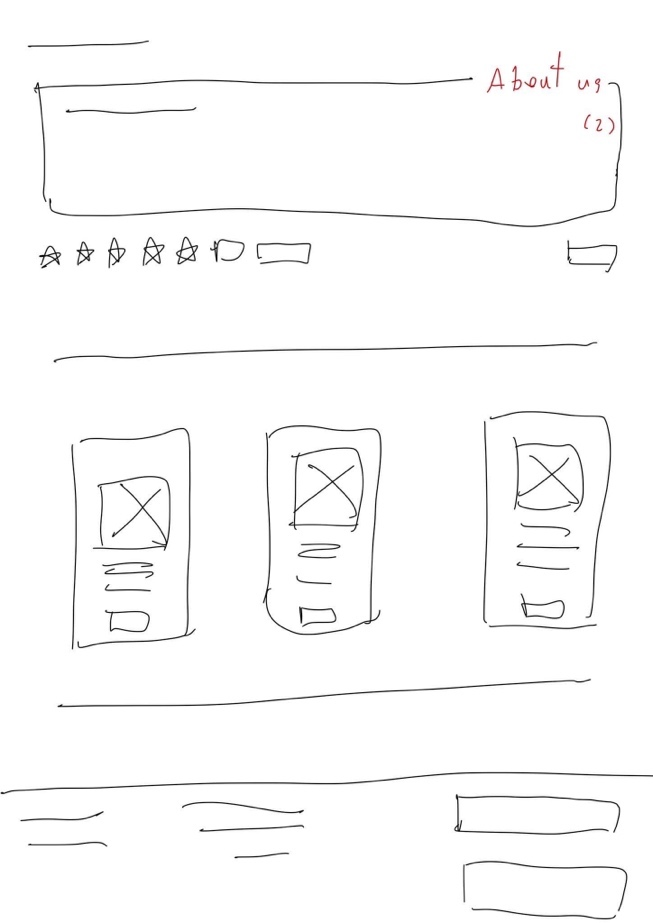 About us
(2)